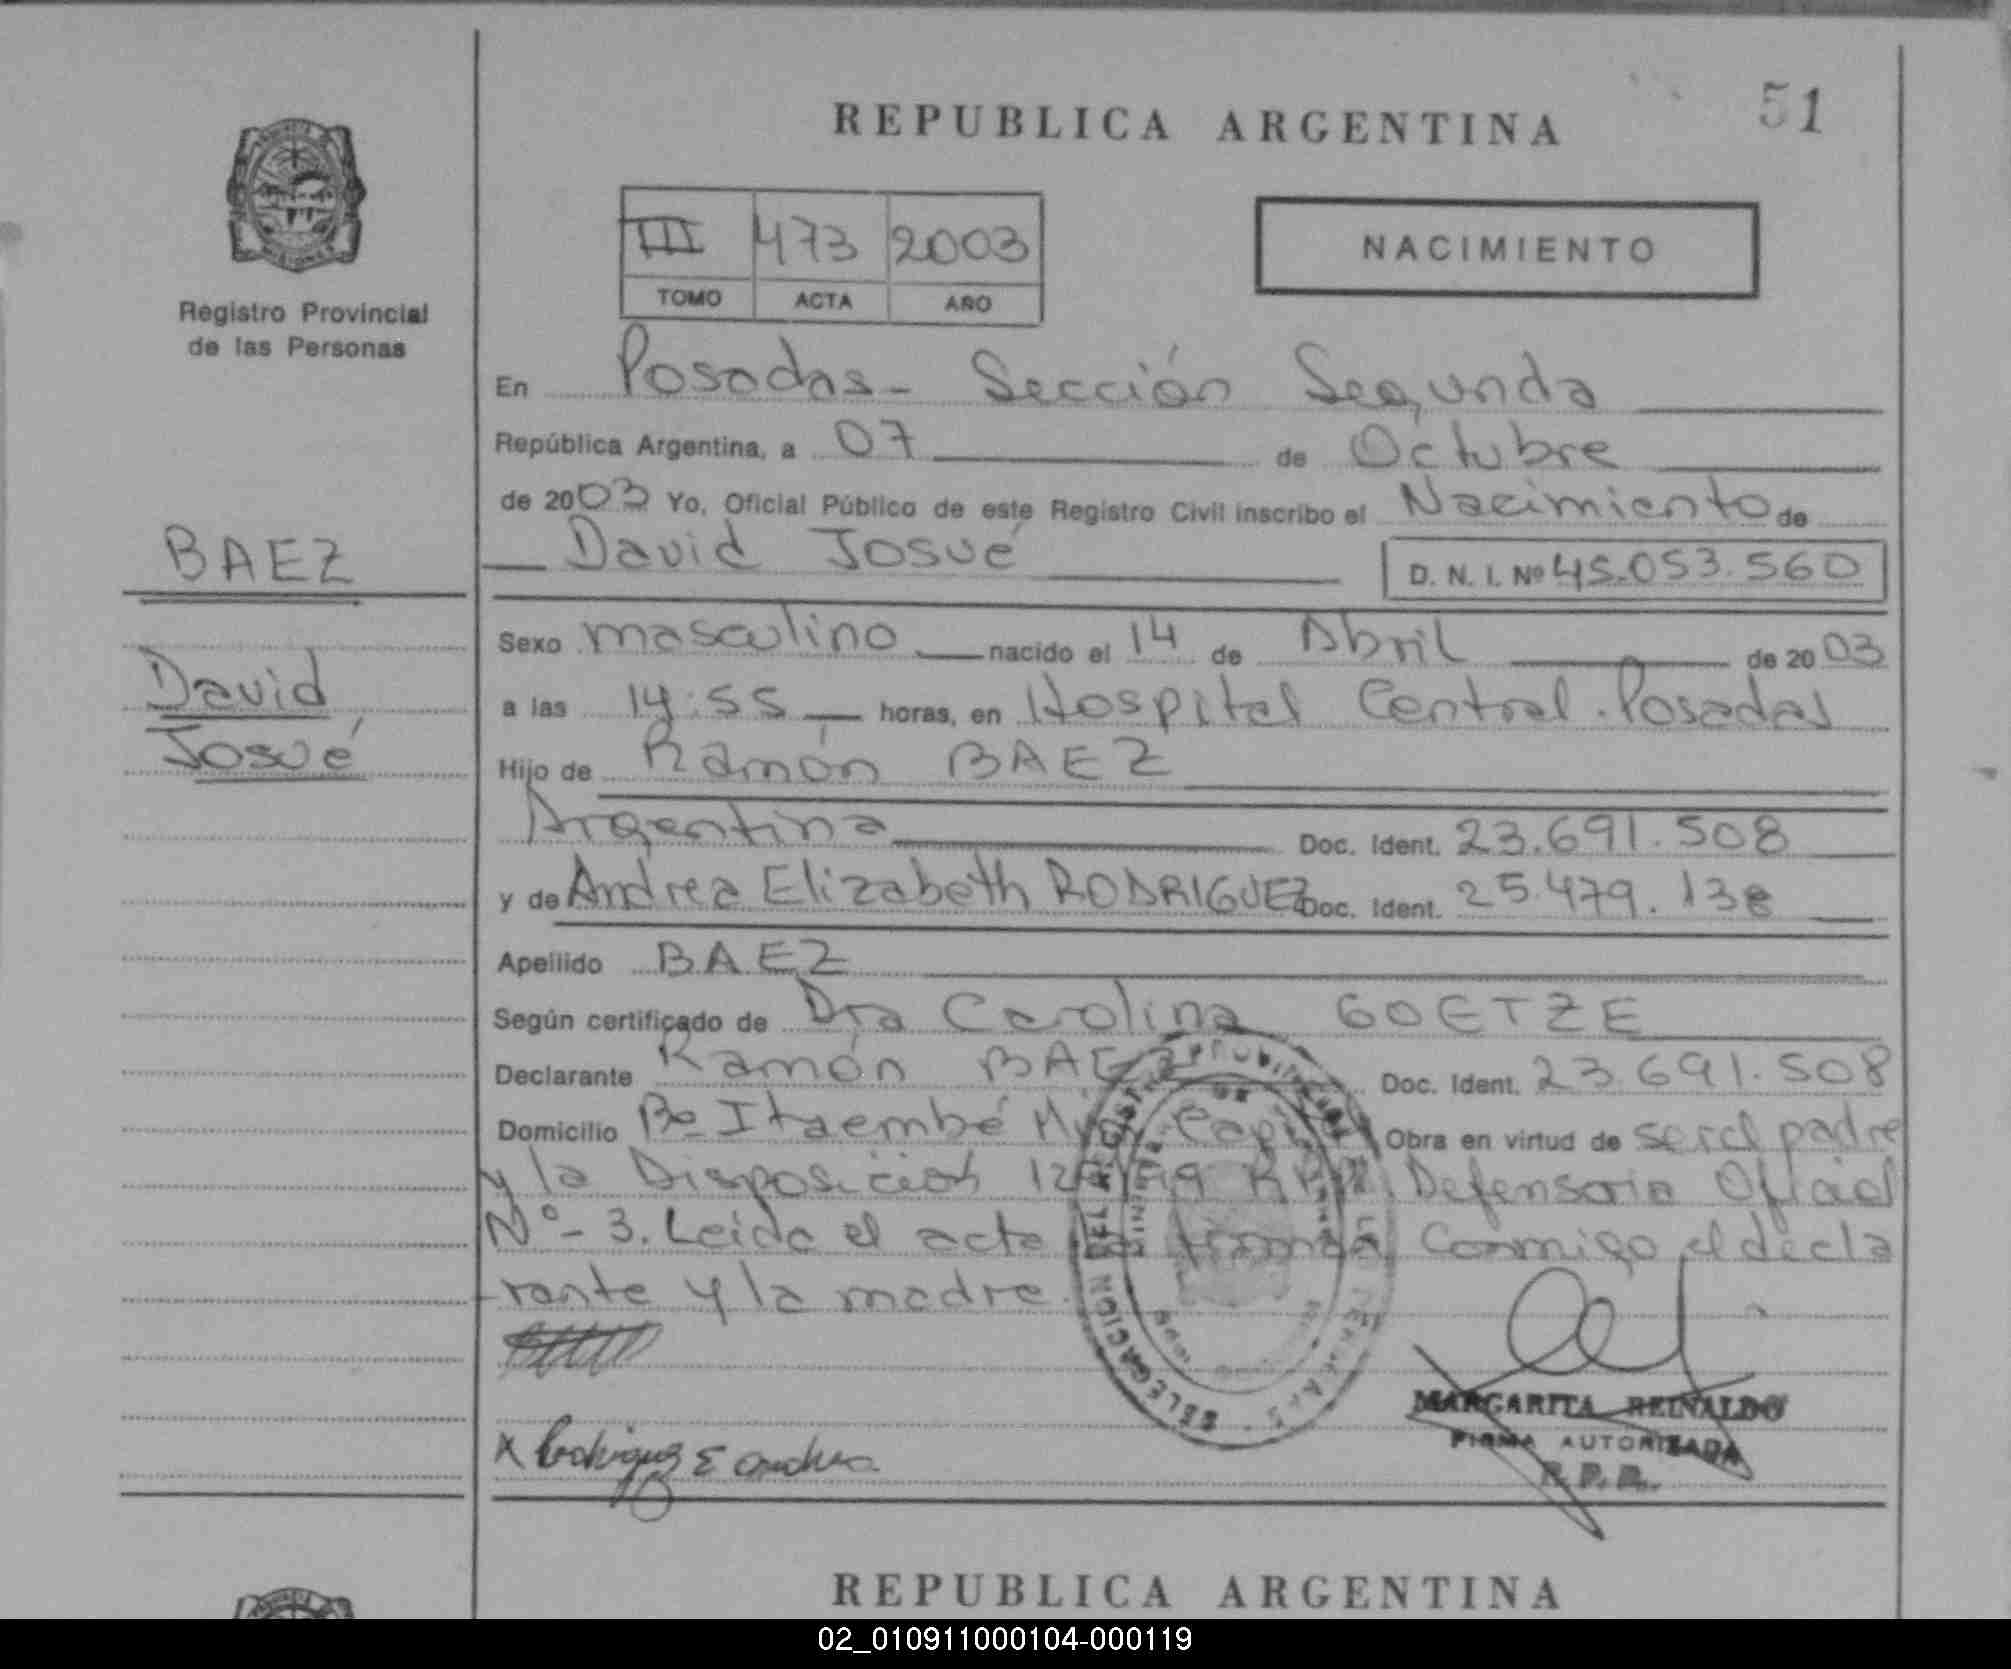 REPUBLICA ARGENTINA
51
III 473 2003
TOMO ACTA AÑO
NACIMIENTO
Registro Provincial
de las Personas
En Posadas - Sección Segunda
República Argentina, a 07 de Octubre
de 2003 Yo, Oficial Público de este Registro Civil inscribo el Nacimiento de
David Josué D. N. I. Nº 45.053.560
BAEZ
David
Josué
Sexo masculino nacido el 14 de Abril de 2003
a las 14:55 horas, en Hospital Central. Posadas
Hijo de Ramón BAEZ
Argentina Doc. Ident. 23.691.508
y de Andrea Elizabeth RODRIGUEZ Doc. Ident. 25.479.138
Apellido BAEZ
Según certificado de Dra Carolina GOETZE
Declarante Ramón BAEZ Doc. Ident. 23.691.508
Domicilio Bº Itaembé Obra en virtud de ser el padre
y la Disposición Defensoria Oficial
Nº - 3. Leida el acta la firman Conmigo el decla
rante y la madre
DELEGACION
MARGARITA REINALDO
FIRMA AUTORIZADA
R.P.P.
x Rodriguez E andrea
REPUBLICA ARGENTINA
02_010911000104-000119